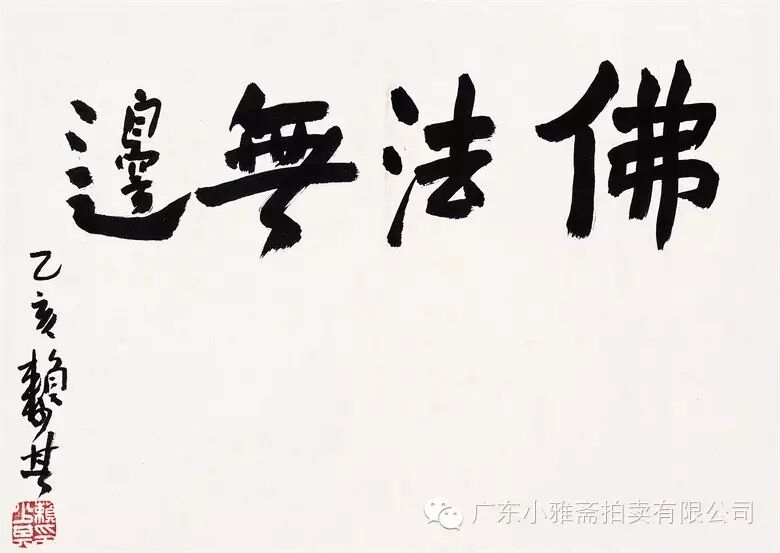 佛法無邊
乙亥 賴少其
广东小雅斋拍卖有限公司